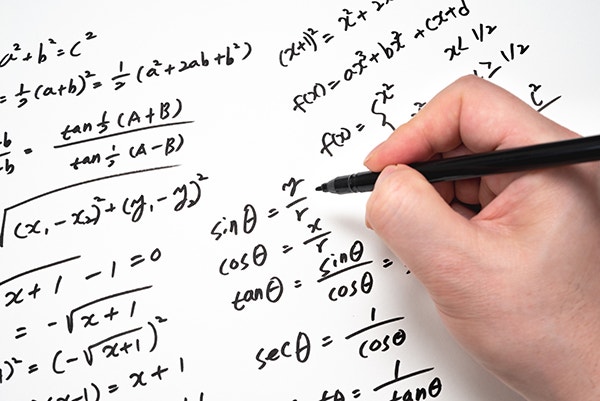 a² + b² = c²
= ½ (a+b)² = ½ (a² + 2ab + b²)
= tan ½ (A+B) / tan ½ (A-B)
√(x₁ - x₂)² + (y₁ - y₂)²
√x+1 - 1 = 0
= -√x+1
)² = (-√x+1)²
x-1) = x+1
(x+1)² = x² + 2x
f(x) = ax³ + bx³ + cx + d
f(x) = { x² x < 1/2
≥ 1/2
sinθ = y/r
cosθ = x/r
tanθ = sinθ/cosθ =
secθ = 1/cosθ
= 1/tanθ